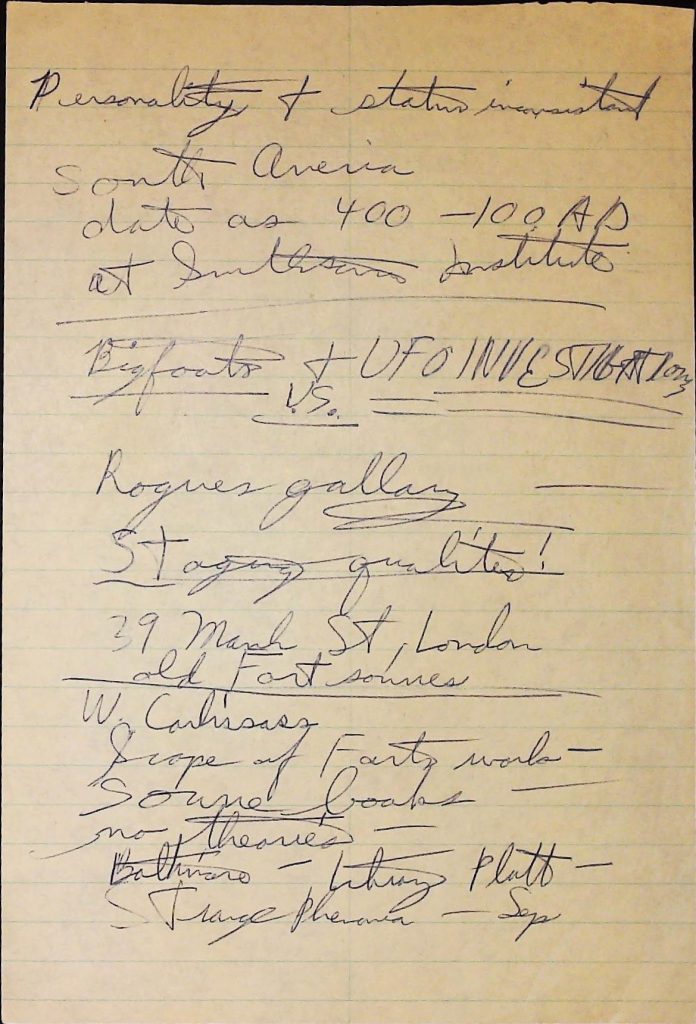 Personality + status inconsistent
South America
date as 400 - 100 AD
at Smithsonian Institute
Bigfoots + UFO INVESTIGATIONS
V.S.
Rogues gallary
Staging qualities!
39 March St, London
old Fort sources
W. Corliss
Scope of Forts work -
Source books -
no theories -
Baltimore - Library Platt -
Strange Phenomena - Sep